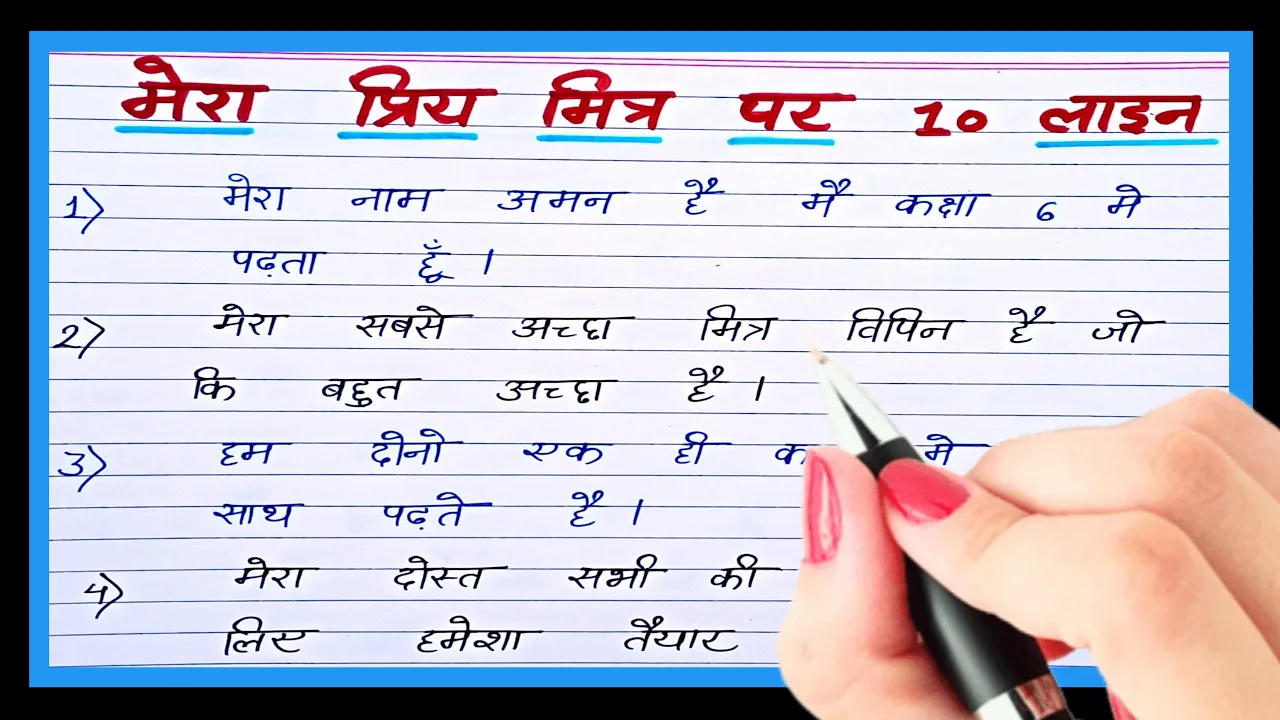 मेरा प्रिय मित्र पर 10 लाइन
1) मेरा नाम अमन है मै कक्षा 6 मे
पढ़ता हूँ ।
2) मेरा सबसे अच्छा मित्र विपिन है जो
कि बहुत अच्छा है ।
3) हम दोनो एक ही मे
साथ पढ़ते है ।
4) मेरा दोस्त सभी की
लिए हमेशा तैयार